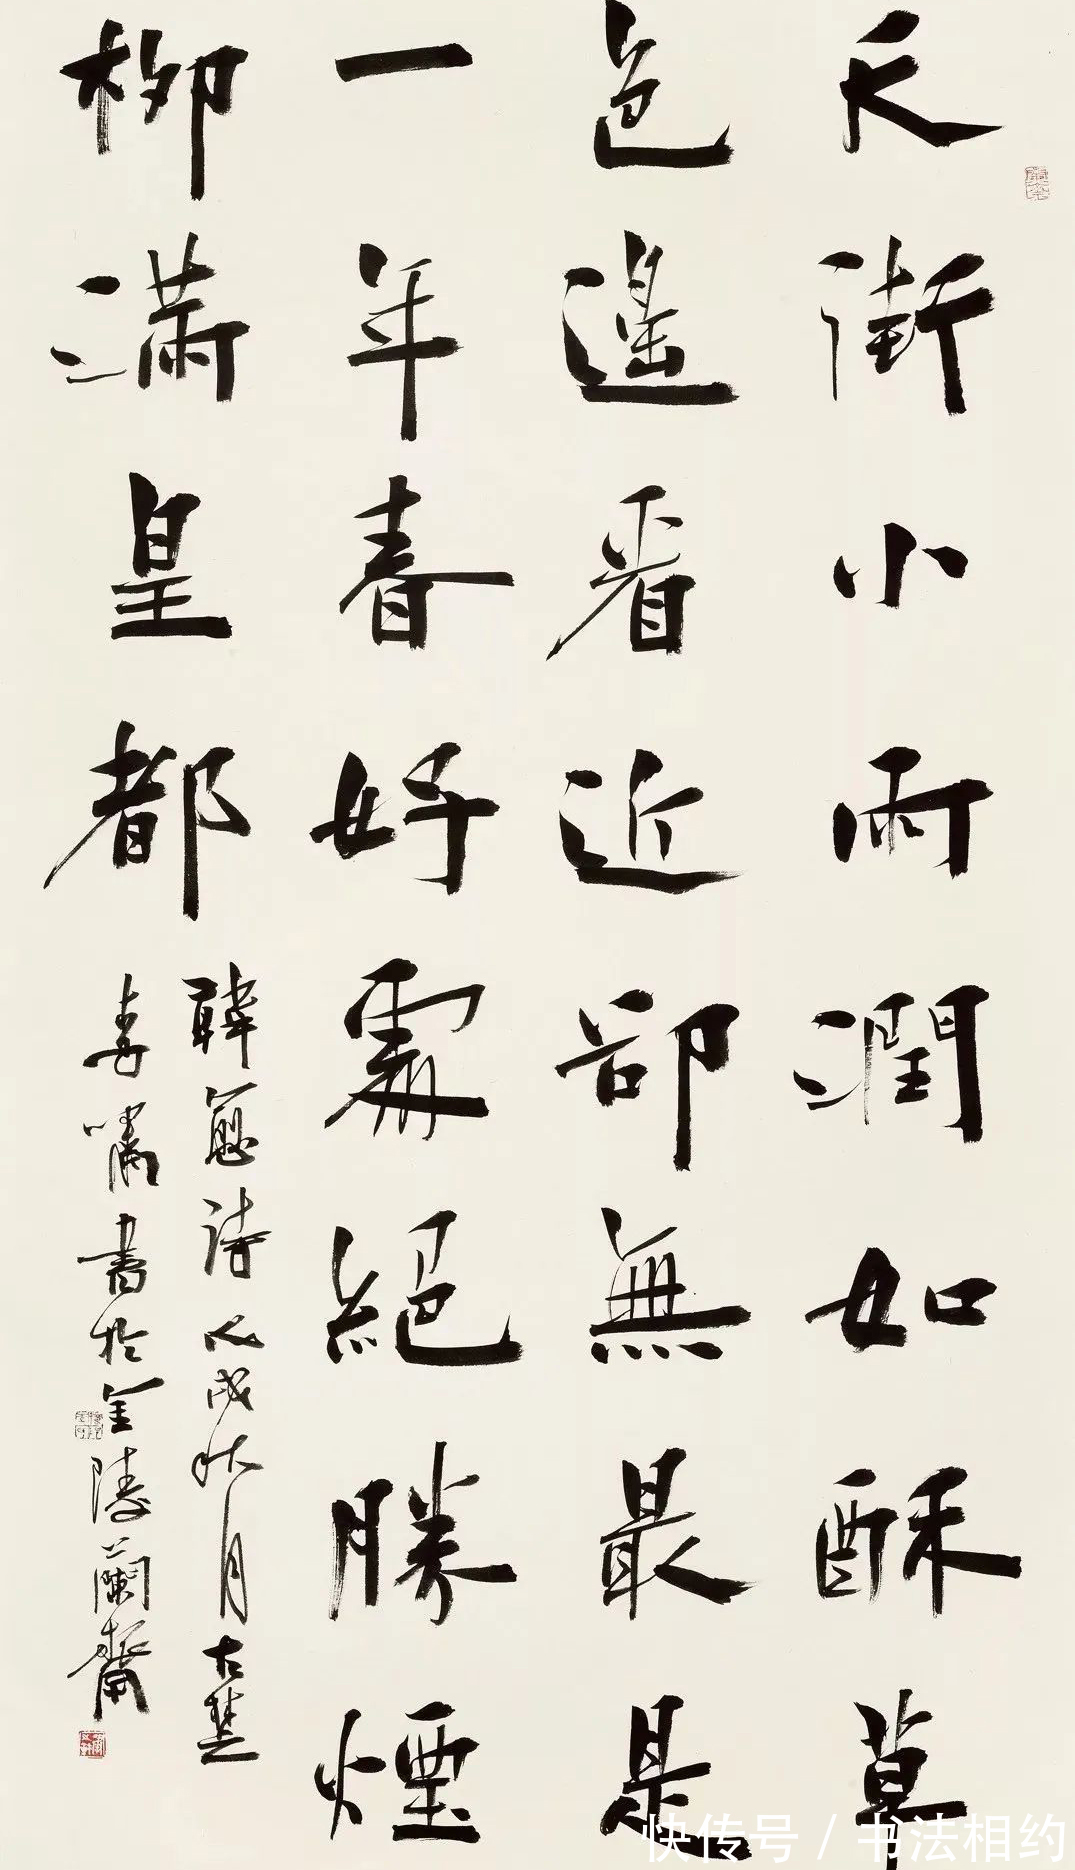 天街小雨潤如酥草
色遙看近卻無最是
一年春好處絕勝煙
柳滿皇都
韓愈詩丙戌秋月古楚
李嘯書於金陵蘭齋
快传号 / 书法相约